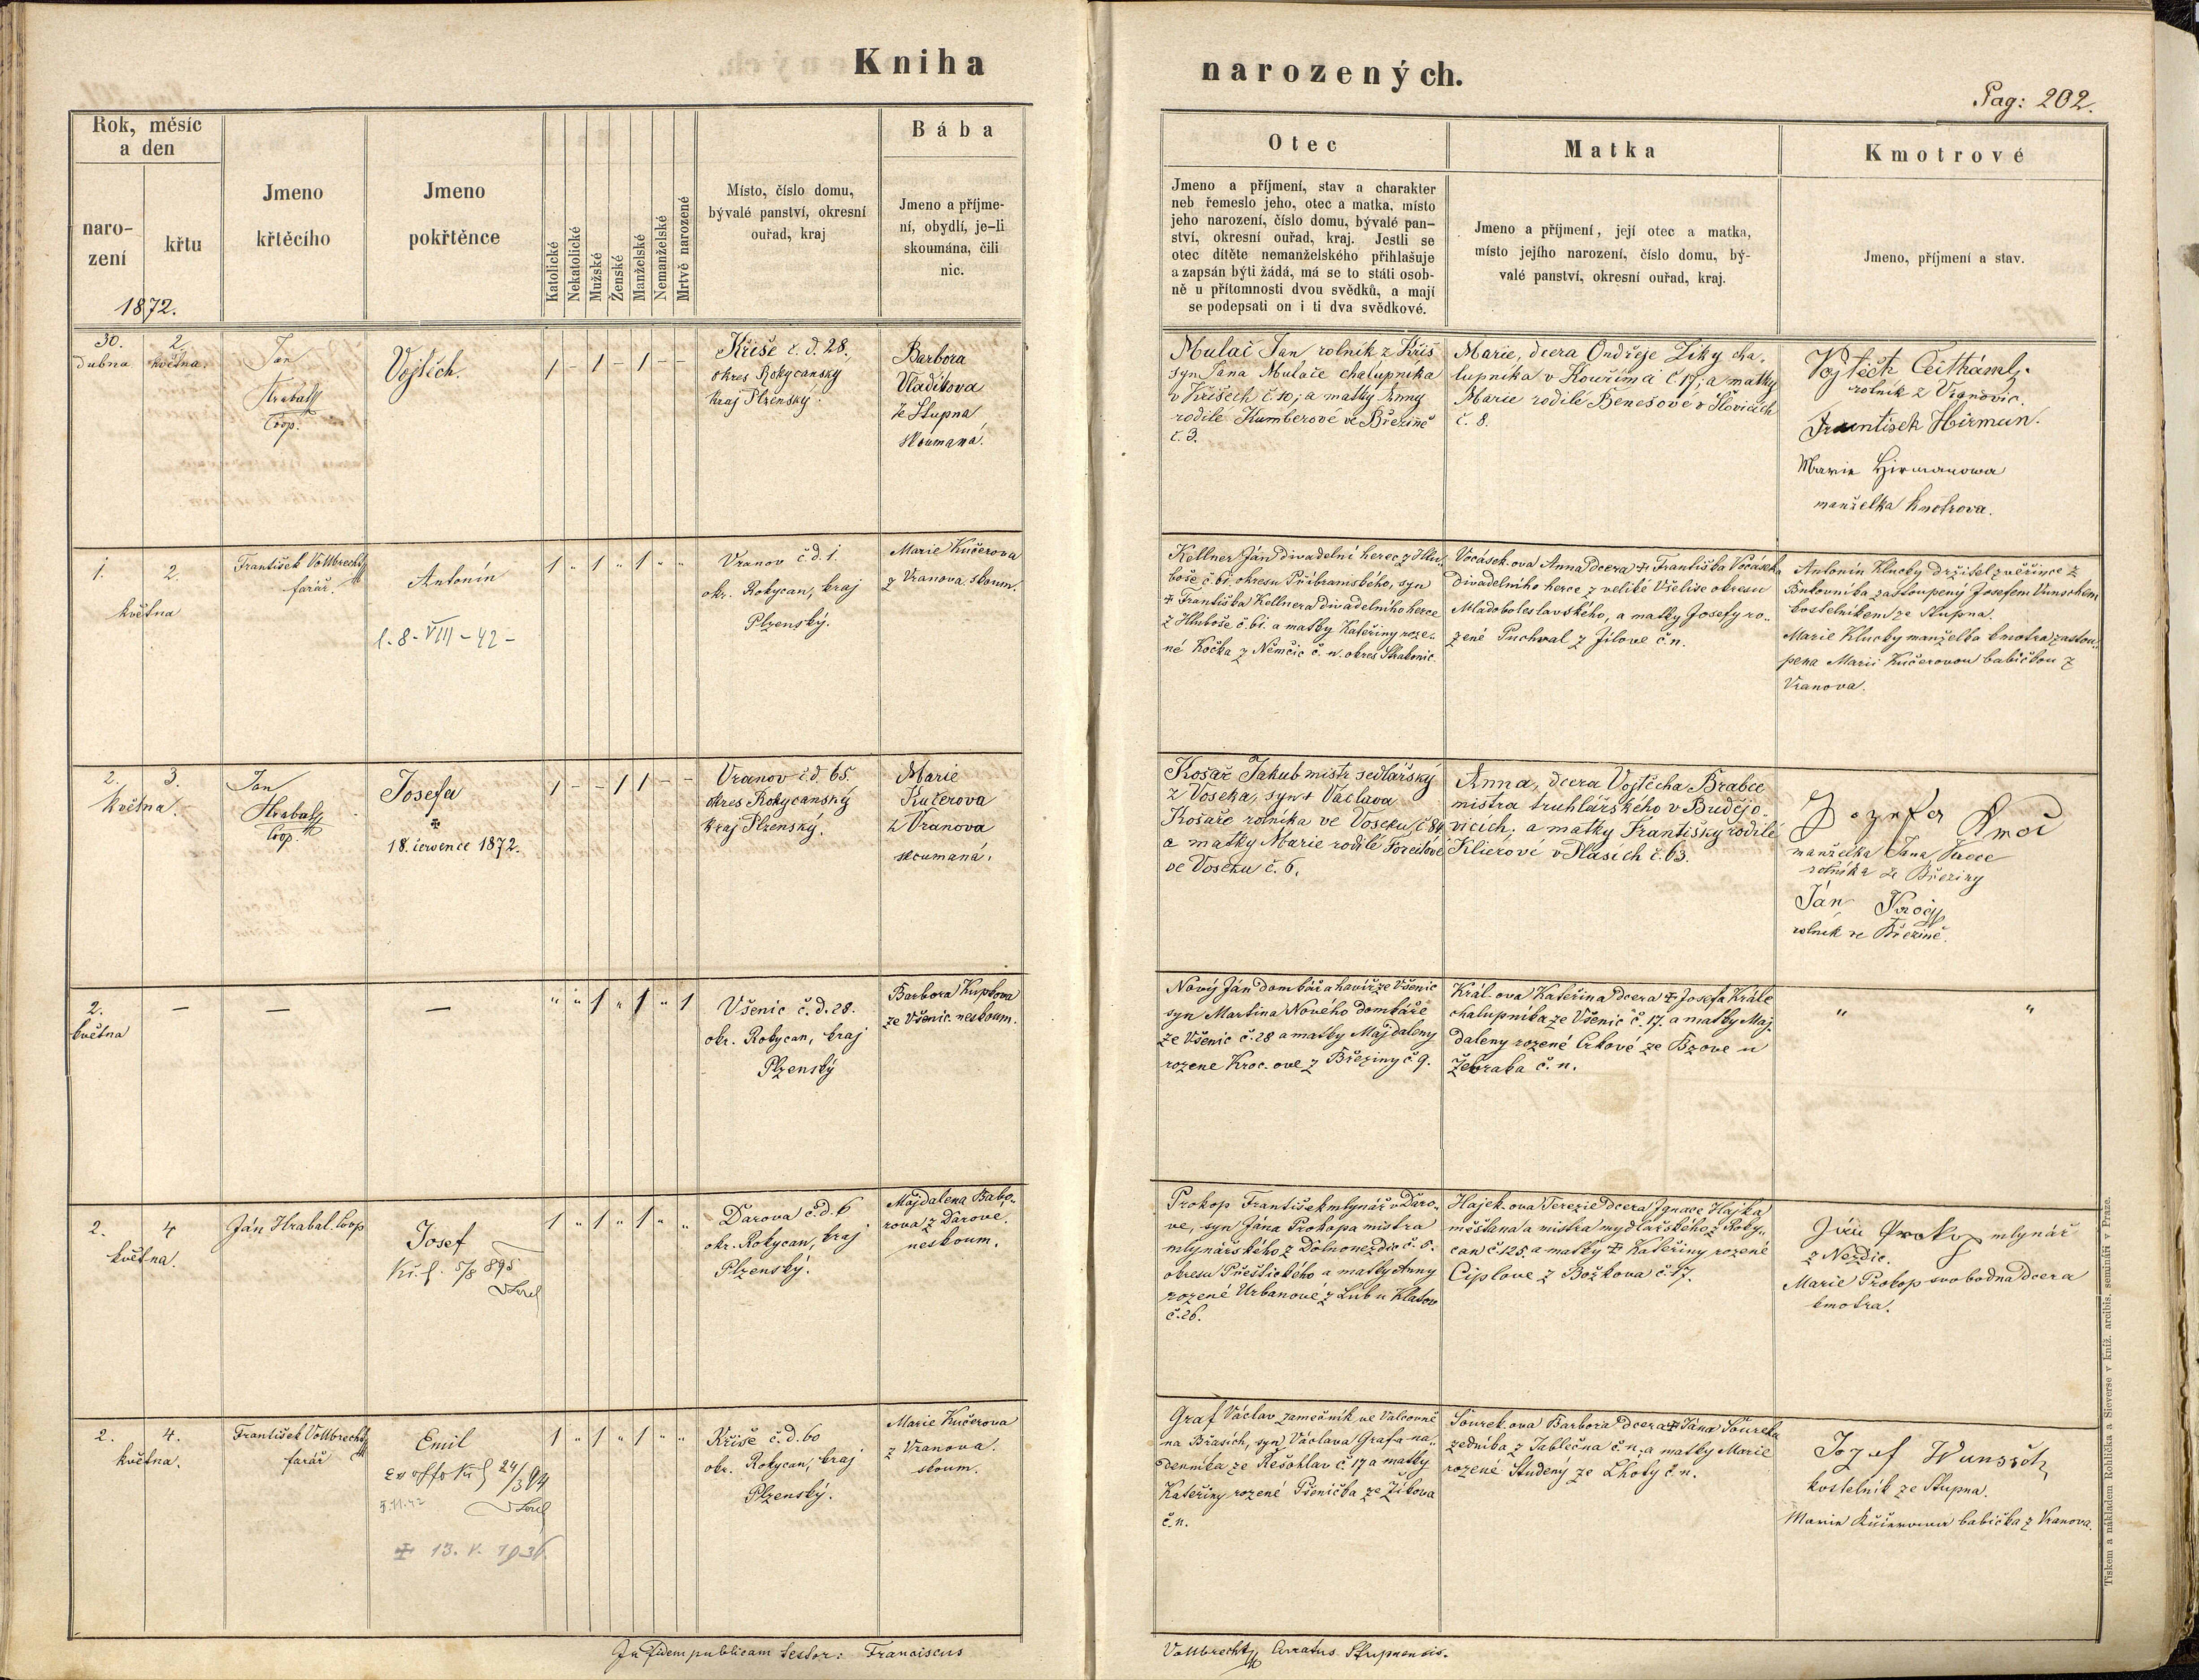 Kniha
narozených.
Pag: 202.
Rok, měsíc
a den
naro-
zení
křtu
1872.
Jmeno
křtěcího
Jmeno
pokřtěnce
Katolické
Nekatolické
Mužské
Ženské
Manželské
Nemanželské
Mrtvě narozené
Místo, číslo domu,
bývalé panství, okresní
ouřad, kraj
Bába
Jmeno a příjme-
ní, obydlí, je-li
skoumána, čili
nic.
Otec
Jmeno a příjmení, stav a charakter
neb řemeslo jeho, otec a matka, místo
jeho narození, číslo domu, bývalé pan-
ství, okresní ouřad, kraj. Jestli se
otec dítěte nemanželského přihlašuje
a zapsán býti žádá, má se to státi osob-
ně u přítomnosti dvou svědků, a mají
se podepsati on i ti dva svědkové.
Matka
Jmeno a příjmení, její otec a matka,
místo jejího narození, číslo domu, bý-
valé panství, okresní ouřad, kraj.
Kmotrové
Jmeno, příjmení a stav.
30. 2.
Dubna května.
Jan
Hrabal
Coop.
Vojtěch.
1 - 1 - 1 - -
Kříše č. d. 28.
okres Rokycanský
kraj Plzenský.
Barbora
Vladikova
ze Stupna
skoumaná.
Mulač Jan rolník z Kříš
syn Jana Mulače chalupníka
v Křišech č. 10; a matky Anny
rodilé Kumberové ve Březině
č. 3.
Marie, dcera Ondřeje Ziky cha-
lupníka v Kouřimci č. 17; a matky
Marie rodilé Benešové v Slovicích
č. 8.
Vojtěch
rolník z Vranovic.
František Hirman.
Marie Hirmanowa
manželka kmotrova.
1. 2.
května
František Vollbrecht
farář.
Antonín
8-VIII-42-
1 " 1 " 1 " "
Vranov č. d. 1.
okr. Rokycan, kraj
Plzenský.
Marie Kučerova
z Vranova skoum.
Kellner Ján divadelní herec z Hlu-
boše č. 61. okresu Příbramského, syn
✝ Františka Kellnera divadelního herce
z Hluboše č. 61. a matky Kateřiny roze-
né Kočka z Němčic č. n. okres Strakonic.
Vocásek.ova Anna dcera ✝ Františka Vocáseka
divadelního herce z veliké Všelise okresu
Mladoboleslavského, a matky Josefy ro-
zené Puchwal z Jílové č. n.
Antonín Klucky držitel zvěřince z
Bukovníka zastoupený Josefem Vunschem
kostelníkem ze Stupna.
Marie Klucky manželka kmotra zastou-
pena Marii Kučerovou babičkou z
Vranova.
2. 3.
května.
Jan
Hrabal
Coop.
Josefa
✝
18. července 1872.
1 - - 1 1 - -
Vranov č. d. 65.
okres Rokycanský
kraj Plzenský.
Marie
Kučerova
z Vranova
skoumaná.
Košař Jakub mistr sedlařský
z Voseka, syn ✝ Václava
Košaře rolníka ve Voseku č. 84
a matky Marie rodilé Forejtové
ve Voseku č. 6.
Anna, dcera Vojtěcha Brabce
mistra truhlářského v Budějo-
vicích; a matky Františky rodilé
Klierové v Plasích č. 63.
Jozefa
manželka Jana
rolníka ze Březiny
Ján
rolník ve Březině.
2.
května
—
—
—
" " 1 " 1 " 1
Všenic č. d. 28.
okr. Rokycan, kraj
Plzenský
Barbora Kuptova
ze Všenic neskoum.
Nový Ján domkář a havíř ze Všenic
syn Martina Nového domkáře
ze Všenic č. 28 a matky Majdaleny
rozené Kroc.ove z Březiny č. 9.
Král.ova Kateřina dcera ✝ Josefa Krále
chalupníka ze Všenic č. 17. a matky Maj-
daleny rozené Crhové ze Bzove u
Žebraka č. n.
" "
2. 4
května.
Ján Hrabal. Coop
Josef
1 " 1 " 1 " "
Darova č. d. 6
okr. Rokycan, kraj
Plzenský.
Majdalena Babo-
rova z Darove.
neskoum.
Prokop František mlynář v Daro-
ve, syn Jána Prokopa mistra
mlynářského z Dolnonezdic č. 5.
okresu Přeštického a matky Anny
rozené Urbanove z Lub u Klatov
č. 26.
Hajek.ova Terezie dcera Ignace Hajka
měšťana a mistra mydlářského z Roky-
can č. 125. a matky ✝ Kateřiny rozené
Ciplove z Božkova č. 17.
Ján Prokop mlynář
z Nezdic.
Marie Prokop svobodna dcera
kmotra.
2. 4.
května.
František Vollbrecht
farář
Emil
5.11.42
✝ 13. V. 1936.
1 " 1 " 1 " "
Kříše č. d. 60
okr. Rokycan, kraj
Plzenský.
Marie Kučerova
z Vranova.
skoum.
Graf Václav zamečník ve Valcovně
na Břasích, syn Václava Grafa na-
denníka ze Rešohlav č. 17 a matky
Kateřiny rozené Pšenička ze Žikova
č. n.
Šourek.ova Barbora dcera ✝ Jána Šoureka
zedníka z Jablečna č. n. a matky Marie
rozené Studený ze Lhoty č. n.
Jozef Wunssch
kostelník ze Stupna.
Marie Kučerowa babička z Vranova.
In fidem publicam testor: Franciscus
Vollbrecht Curatus Stupnensis.
Tiskem a nákladem Rohlíčka a Sieverse v kníž. arcibis. semináři v Praze.